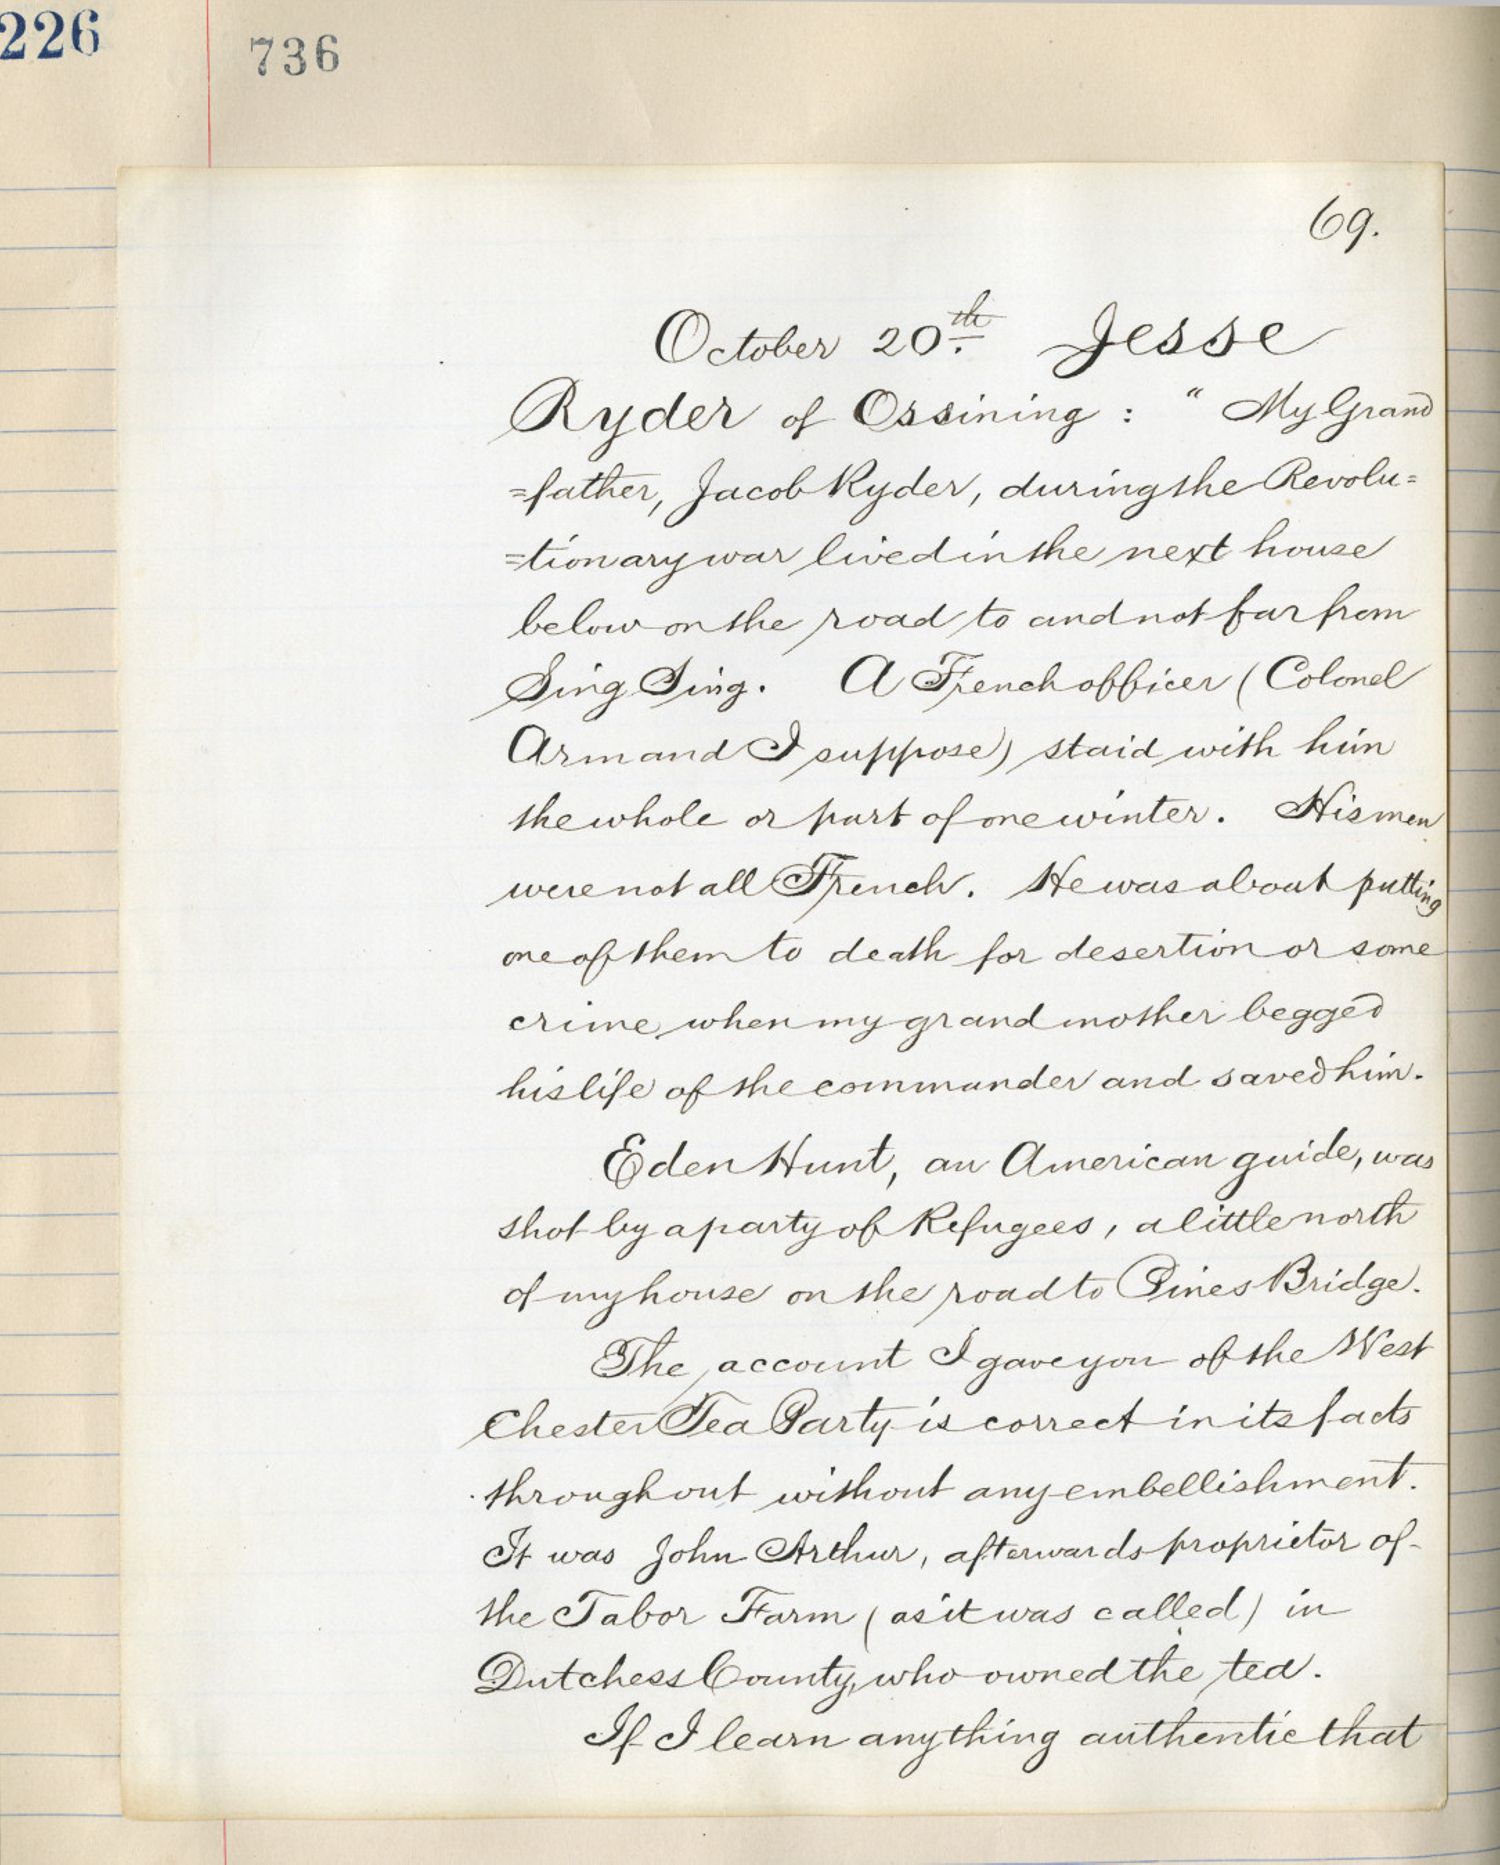 226
736
69.
October 20th. Jesse
Ryder of Ossining : " My Grand
=father, Jacob Ryder, during the Revolu=
=tionary war lived in the next house
below on the road to and not far from
Sing Sing. A French officer (Colonel
Armand I suppose) staid with him
the whole or part of one winter. His men
were not all French. He was about putting
one of them to death for desertion or some
crime when my grandmother begged
his life of the commander and saved him.
Eden Hunt, an American guide, was
shot by a party of Refugees, a little north
of my house on the road to Pines Bridge.
The account I gave you of the West
Chester Tea Party is correct in its facts
throughout without any embellishment.
It was John Arthur, afterwards proprietor of
the Tabor Farm (as it was called) in
Dutchess County, who owned the tea.
If I learn anything authentic that